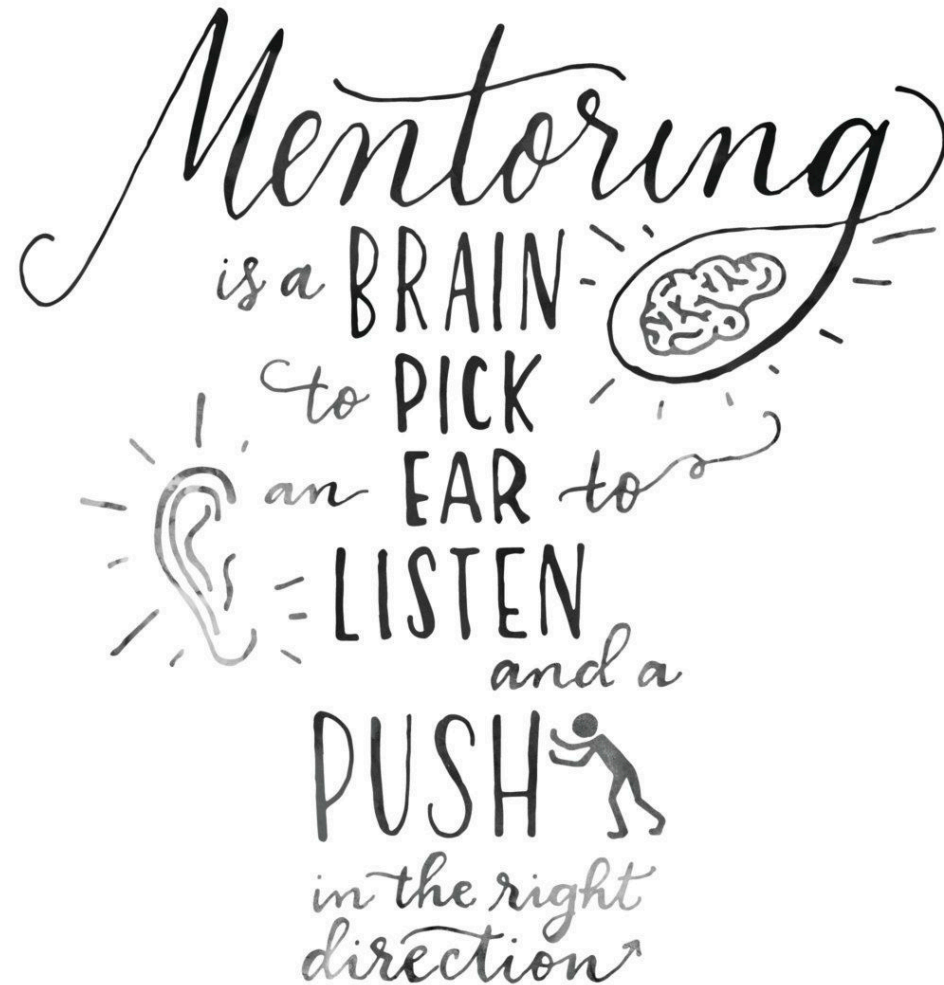 Mentoring
is a BRAIN
to PICK
an EAR to
LISTEN
and a
PUSH
in the right
direction